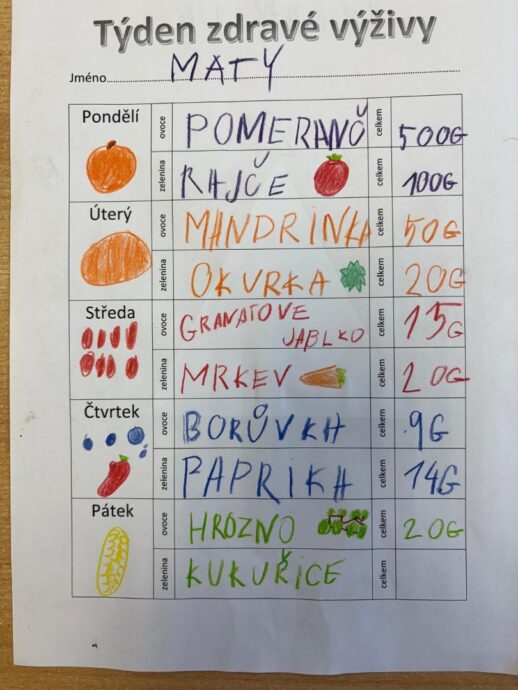 Týden zdravé výživy
Jméno MATY
Pondělí ovoce POMERANČ celkem 500G
zelenina RAJČE celkem 100G
Úterý ovoce MANDRINKA celkem 50G
zelenina OKURKA celkem 20G
Středa ovoce GRANATOVE celkem 15G
JABLKO
zelenina MRKEV celkem 20G
Čtvrtek ovoce BORŮVKA celkem 9G
zelenina PAPRIKA celkem 14G
Pátek ovoce HROZNO celkem 20G
zelenina KUKUŘICE celkem